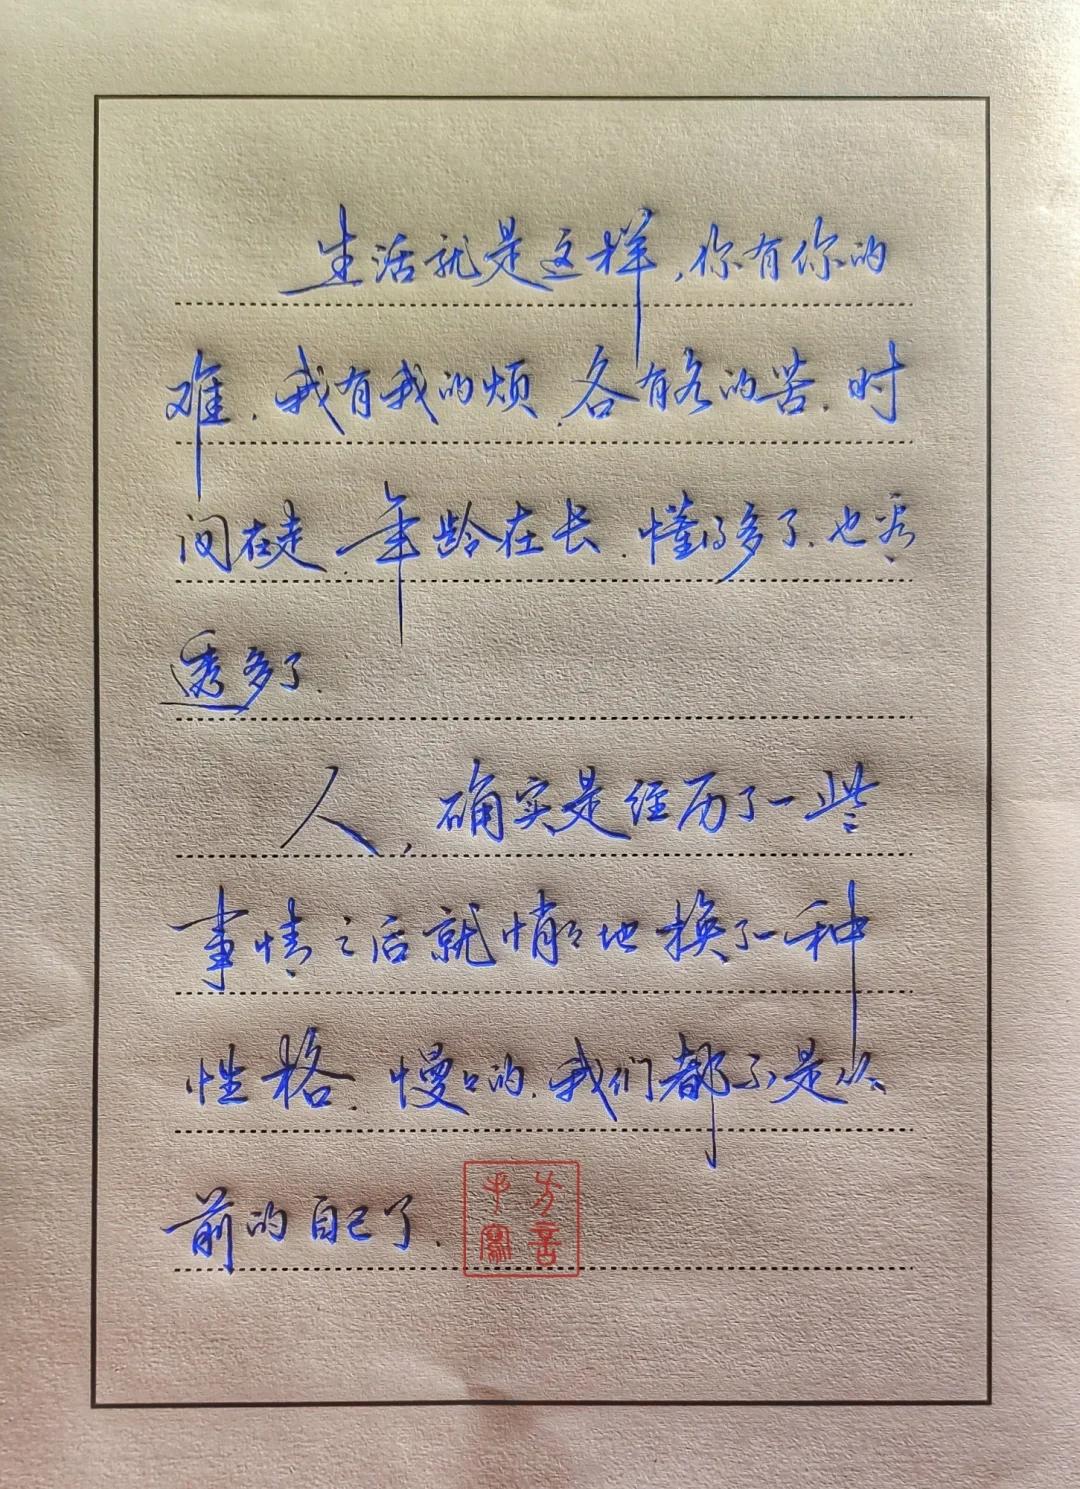 生活就是这样,你有你的
难.我有我的烦.各有各的苦.时
间在走.年龄在长.懂得多了.也看
透多了.
人,确实是经历了一些
事情之后就悄悄地换了一种
性格.慢慢的.我们都不是从
前的自己了.